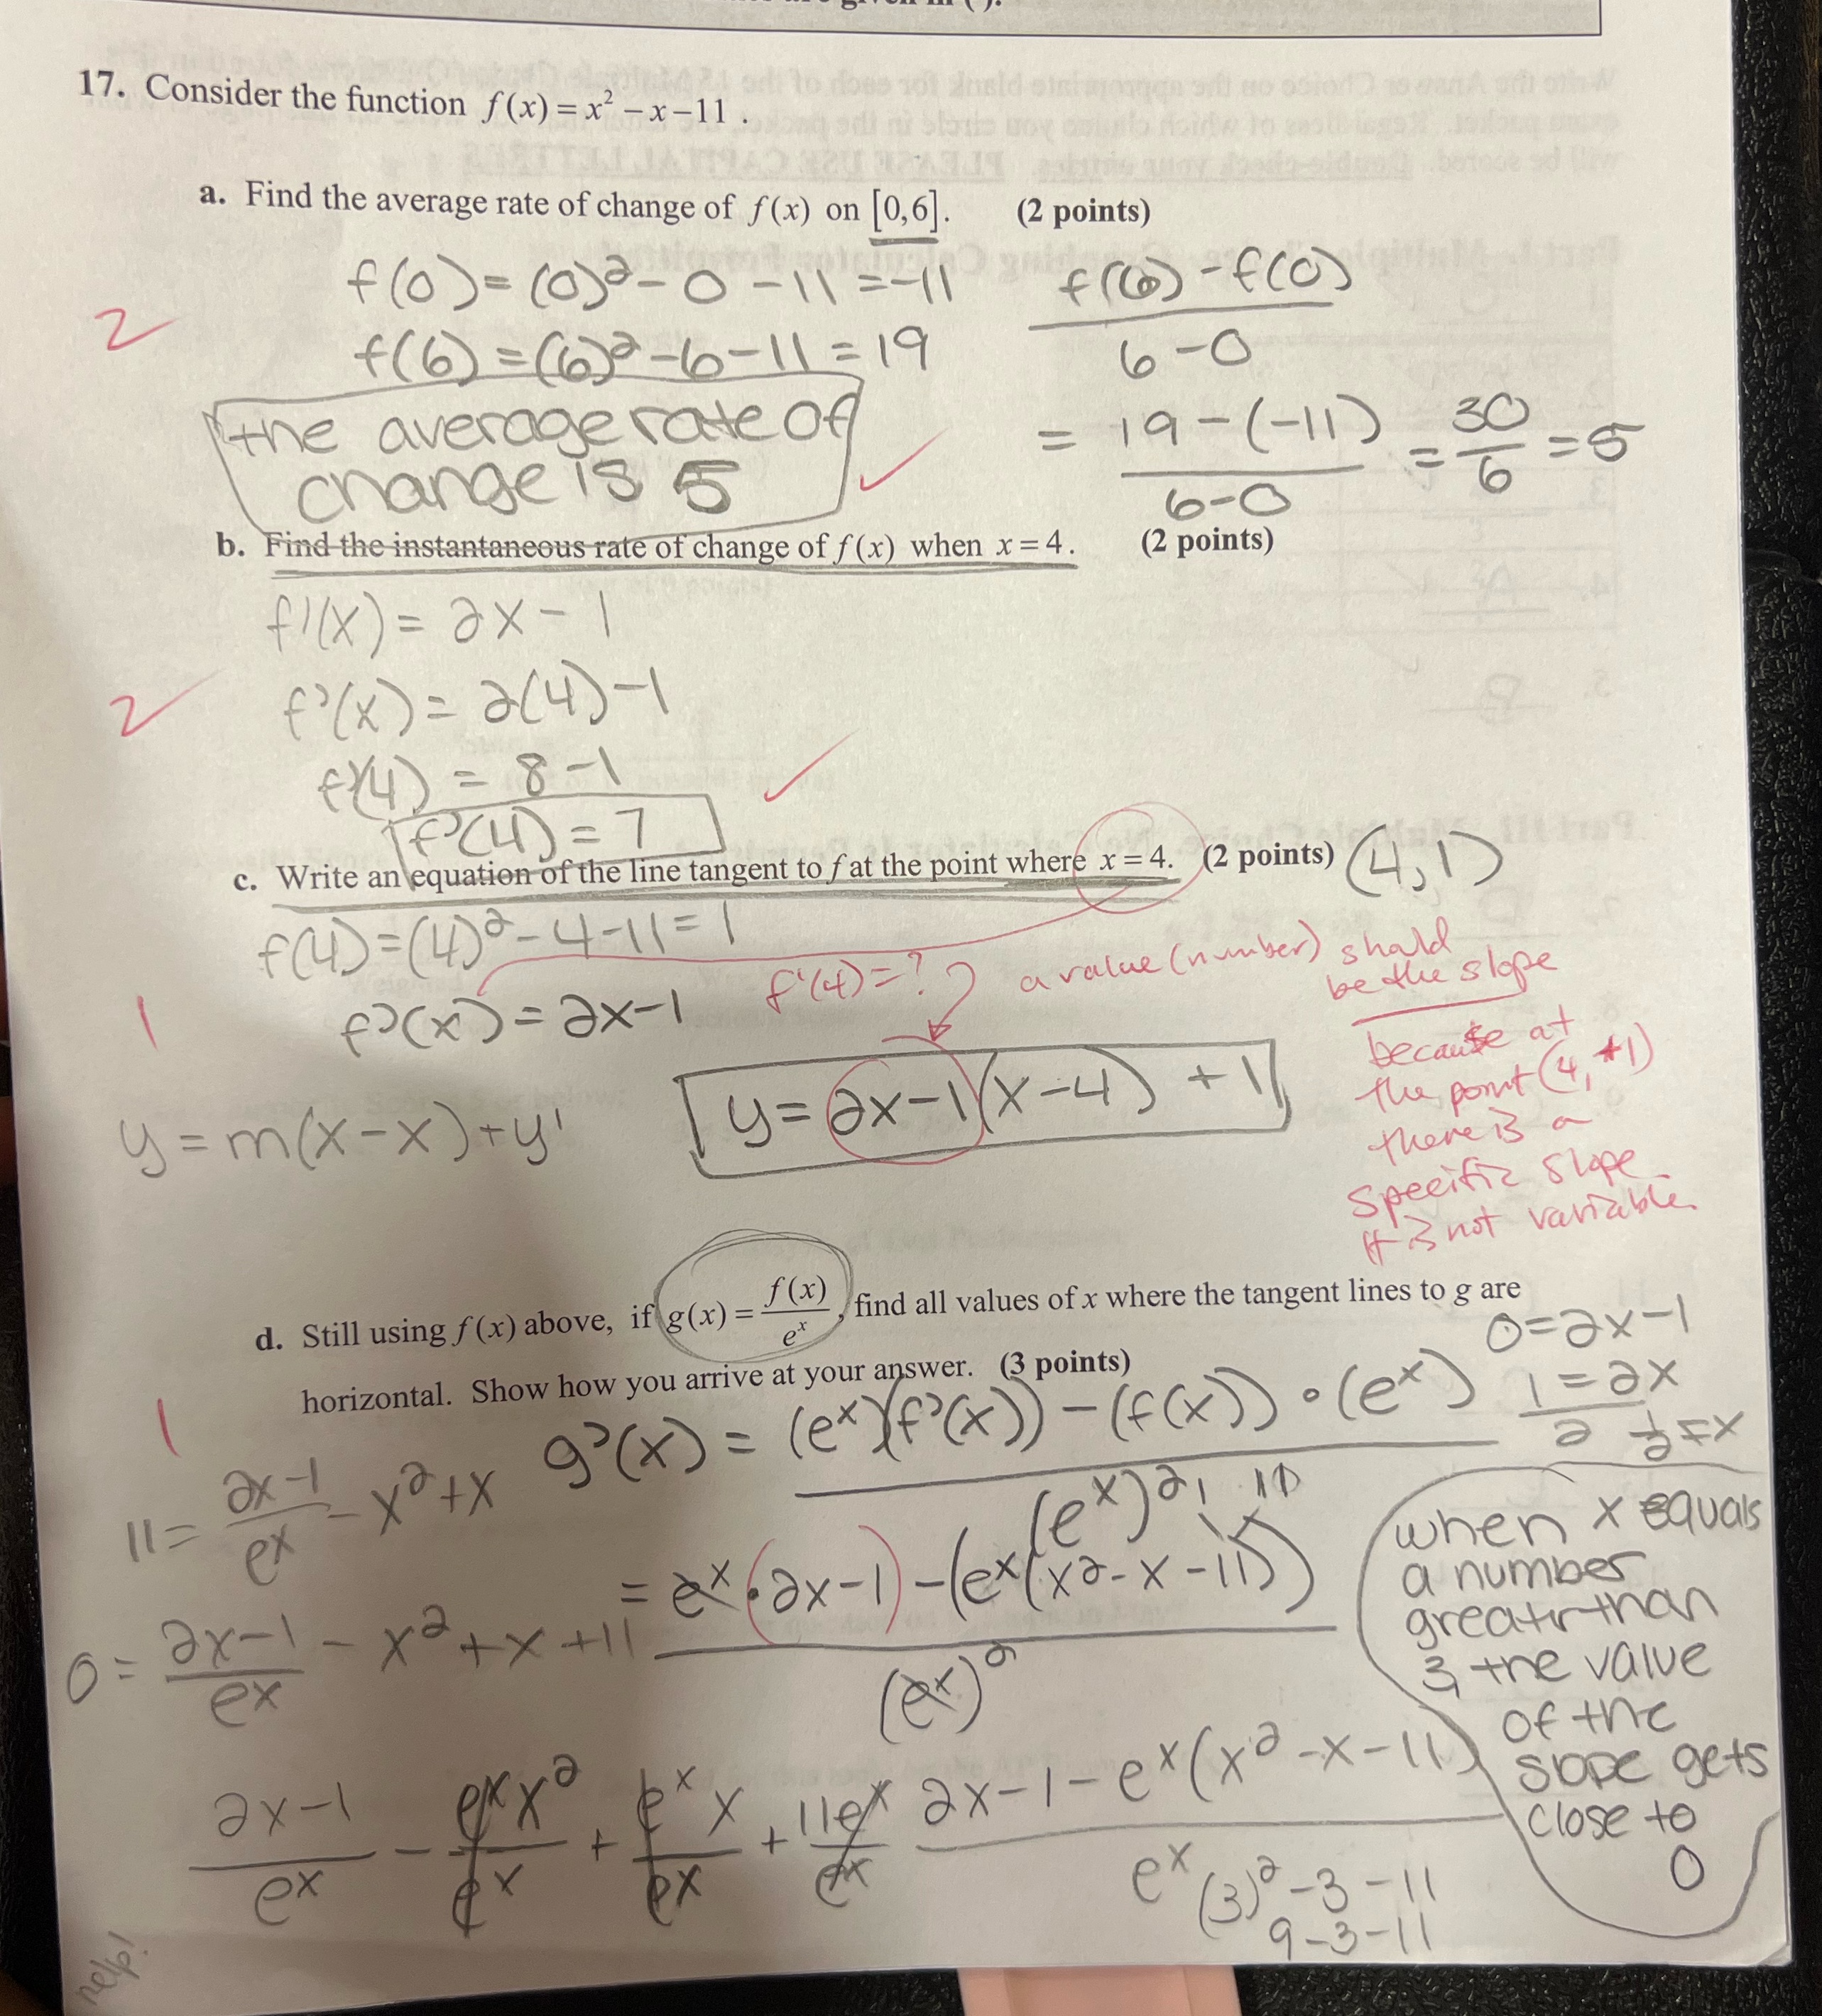 17. Consider the function f(x) = x² − x − 11 .
a. Find the average rate of change of f(x) on [0,6]. (2 points)
f(0) = (0)² − 0 − 11 = −11
f(6) = (6)² − 6 − 11 = 19
f(6) − f(0)
6 − 0
= 19 − (−11) = 30 = 5
6 − 0 6
2
the average rate of
change is 5
b. Find the instantaneous rate of change of f(x) when x = 4. (2 points)
f'(x) = 2x − 1
2
f'(x) = 2(4) − 1
f'(4) = 8 − 1
f'(4) = 7
c. Write an equation of the line tangent to f at the point where x = 4. (2 points) (4,1)
f(4) = (4)² − 4 − 11 = 1
f'(4) = ? a value (number) should
be the slope
1
f'(x) = 2x − 1
because at
the point (4, +1)
there is a
specific slope.
It is not variable.
y = 2x − 1(x − 4) + 1
y = m(x − x) + y'
d. Still using f(x) above, if g(x) = f(x)/eˣ , find all values of x where the tangent lines to g are
horizontal. Show how you arrive at your answer. (3 points)
0 = 2x − 1
1 = 2x
2
½ = x
1
g'(x) = (eˣ)(f'(x)) − (f(x)) · (eˣ)
(eˣ)²
11 = 2x − 1 − x² + x
eˣ
= eˣ · (2x − 1) − (eˣ(x² − x − 11))
(eˣ)²
0 = 2x − 1 − x² + x + 11
eˣ
2x − 1 − eˣx² + eˣx + 11eˣ
eˣ eˣ eˣ eˣ
2x − 1 − eˣ(x² − x − 11)
eˣ
(3)² − 3 − 11
9 − 3 − 11
when x equals
a number
greater than
3 the value
of the
slope gets
close to
0
help!